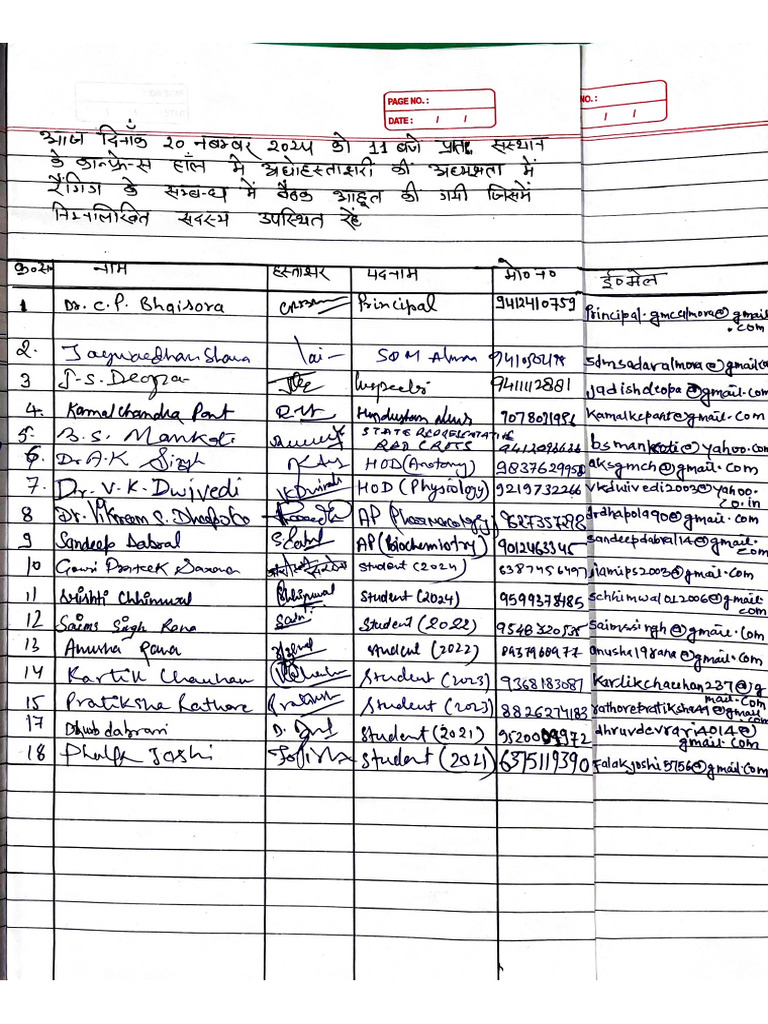 PAGE NO. :
DATE : / /
NO. :
/ /
आज दिनाँक 20 नवम्बर 2024 को 11 बजे प्रातः संस्थान
के कान्फ्रेन्स हॉल में अधोहस्ताक्षरी की अध्यक्षता में
रैगिंग के सम्बन्ध में बैठक आहूत की गयी जिसमें
निम्नलिखित सदस्य उपस्थित रहें
क्र०स० नाम हस्ताक्षर पदनाम मो० न० ई०मेल
1 Dr. C. P. Bhaisora Principal 9412410759 principal.gmcalmora@gmail.com
2. SDM sdmsadaralmora@gmail.com
3 J. S. Deopa 9411112881 jgdishdeopa@gmail.com
4. Kamal Chandra Pant Hindustan 9078071986 kamalkcpant@gmail.com
5. B. S. Mankoti STATE REPRESENTATIVE RED CROSS bsmankoti@yahoo.com
6. Dr A. K Singh HOD (Anatomy) 9837629958 aksgmch@gmail.com
7. Dr. V. K. Dwivedi VKDwivedi HOD (Physiology) 9219732266 vkdwivedi2003@yahoo.co.in
8 Dr. Vikram S. Dhapola AP (Pharmacology) drdhapola90@gmail.com
9 Sandeep Dabral AP (Biochemistry) 9012463345 sandeepdabral14@gmail.com
10 Student (2024) 6387456497 iamips2003@gmail.com
11 Srishti Chhimwal Chhimwal Student (2024) 9599378485 schhimwal012006@gmail.com
12 Saims Singh Rana Student (2022) 9548320535 saimssingh@gmail.com
13 Anusha Rana Student (2022) 8937960977 anusha19rana@gmail.com
14 Kartik Chauhan Student (2023) 9368183087 kartikchauhan237@gmail.com
15 Pratiksha Rathore Student (2023) 8826274183 rathorepratiksha44@gmail.com
17 Student (2021) dhruvdevrari4014@gmail.com
18 Phalak Joshi Student (2021) 6375119390 falakjoshi5756@gmail.com